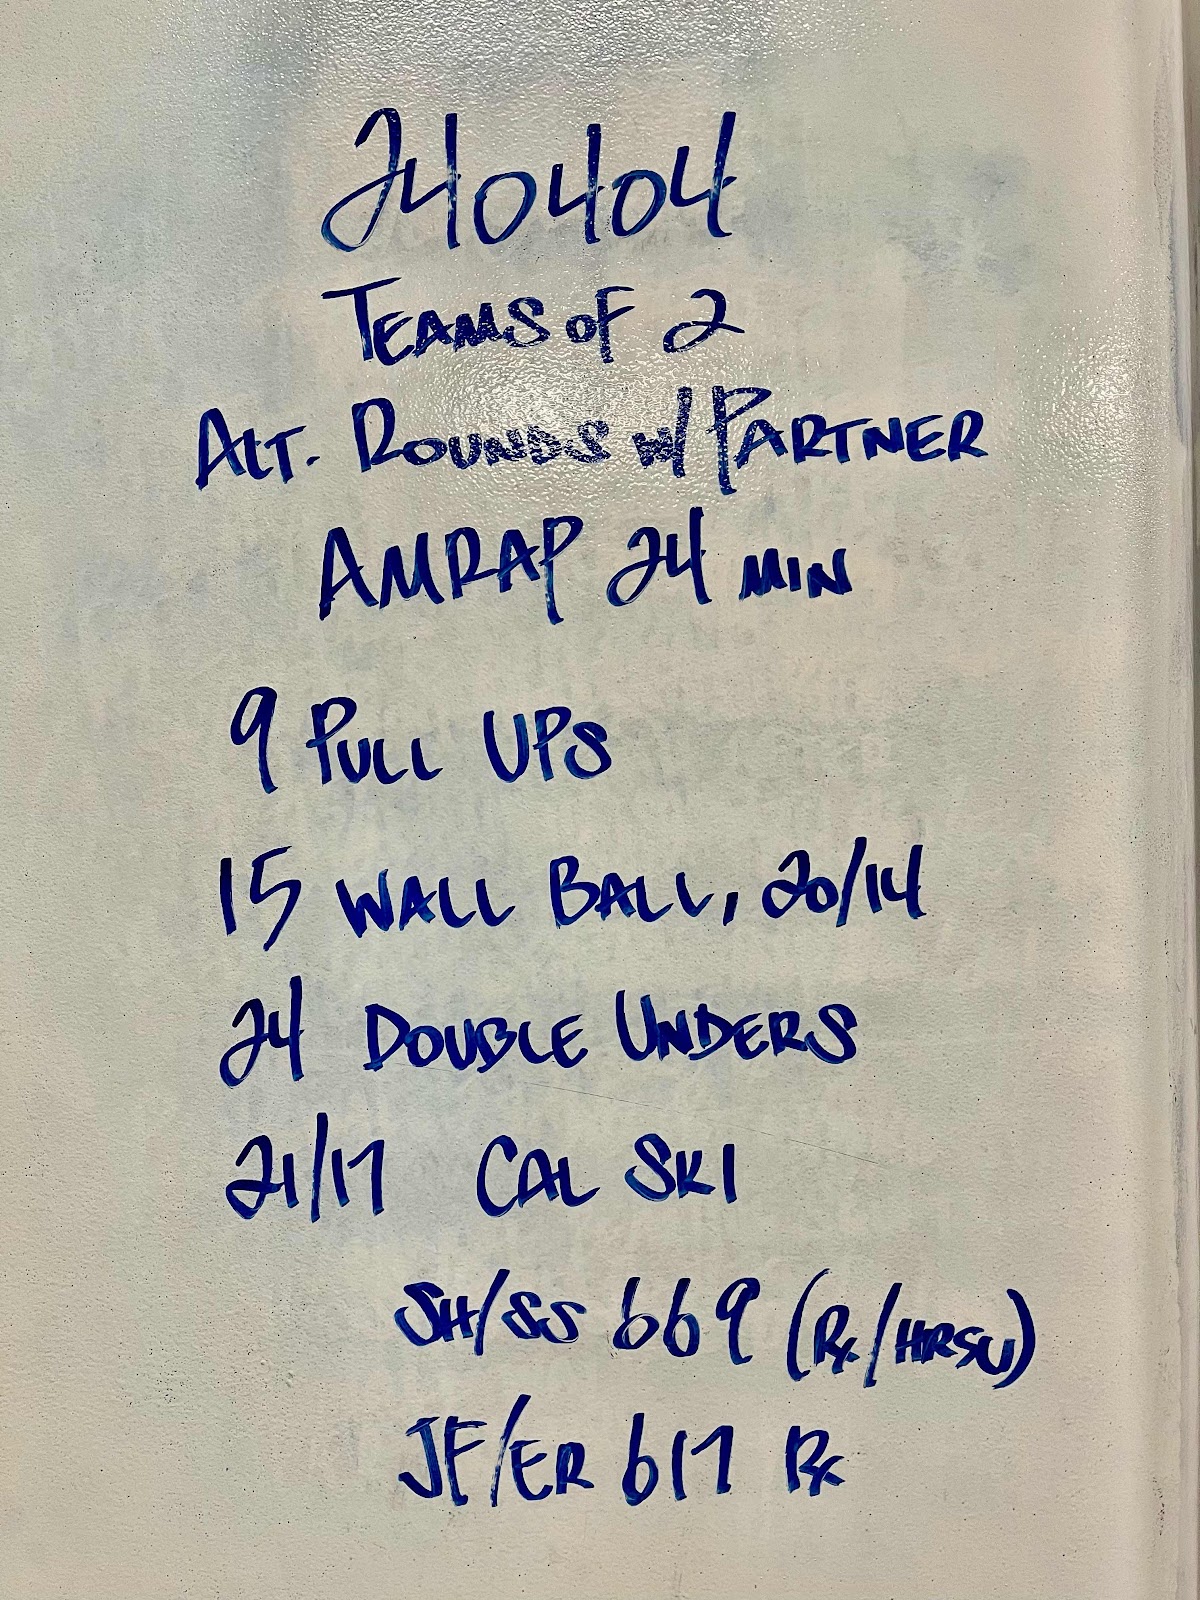 240404
TEAMS OF 2
ALT. ROUNDS W/ PARTNER
AMRAP 24 MIN
9 PULL UPS
15 WALL BALL, 20/14
24 DOUBLE UNDERS
21/17 CAL SKI
SH/SS 669 (Rx/HRSU)
JF/ER 617 Rx